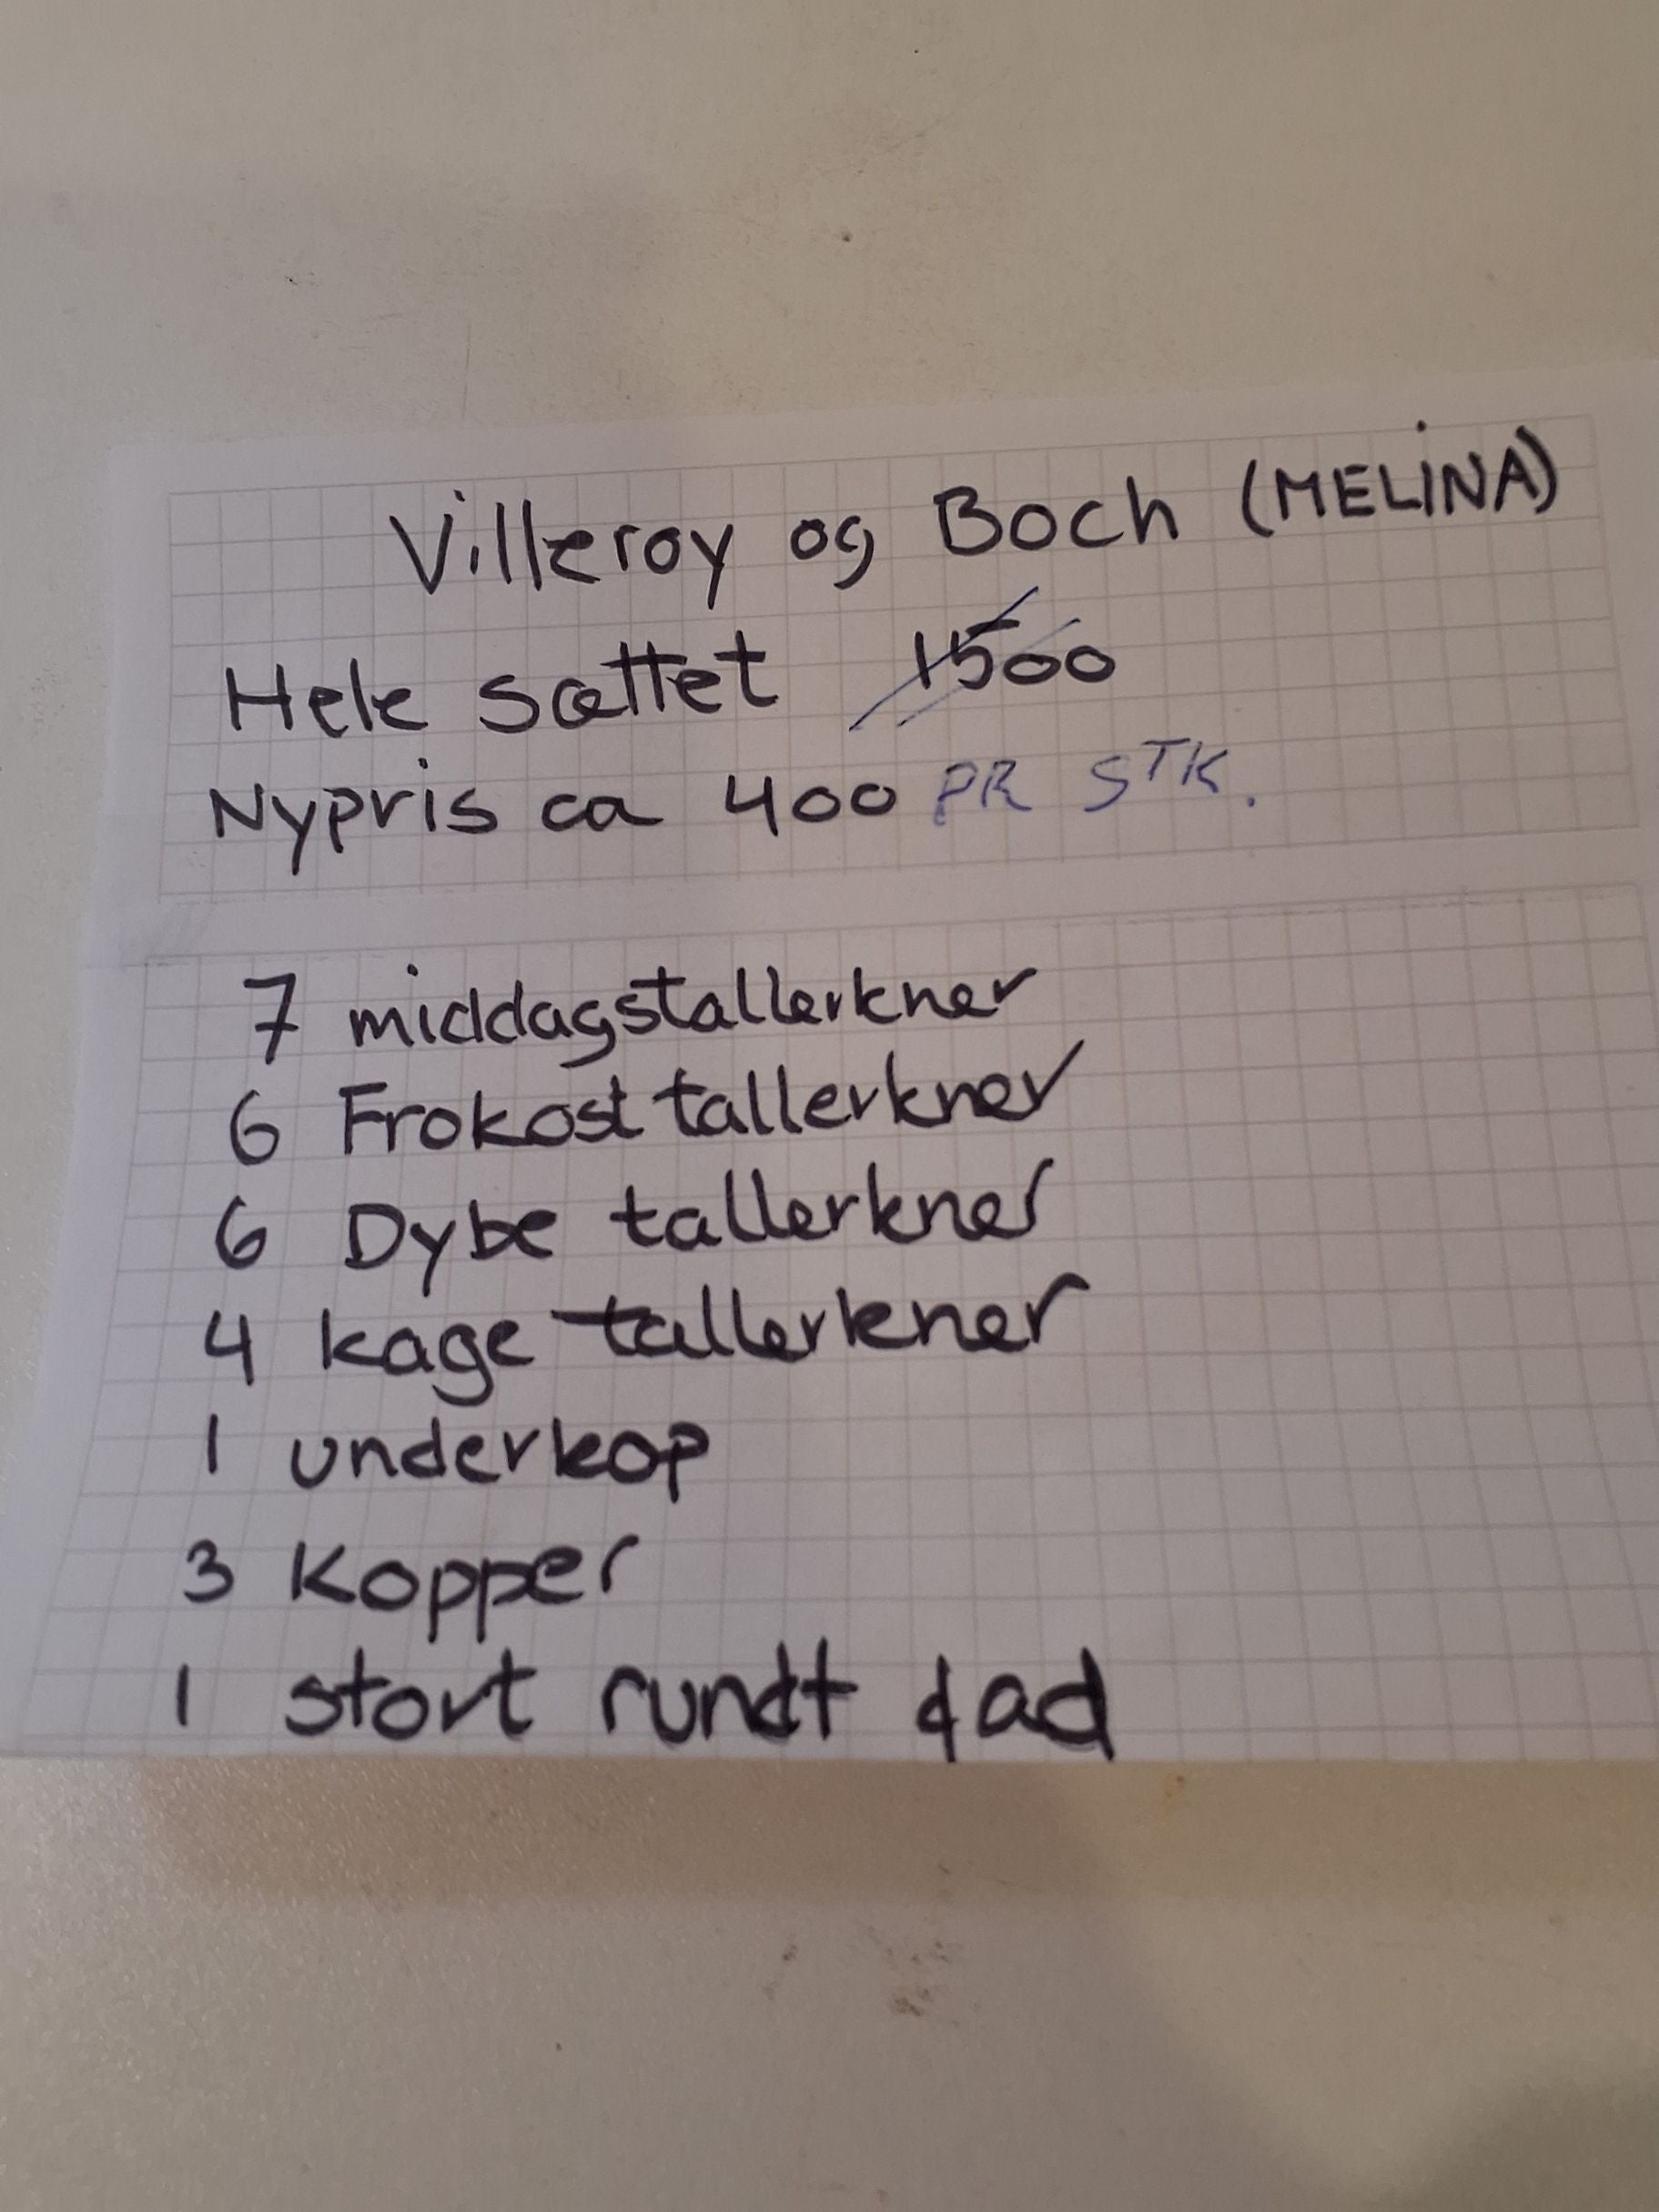 Villeroy og Boch (MELINA)
Hele sættet 1500
Nypris ca 400 PR STK.
7 middagstallerkner
6 Frokost tallerkner
6 Dybe tallerkner
4 kage tallerkner
1 underkop
3 Kopper
1 stort rundt fad